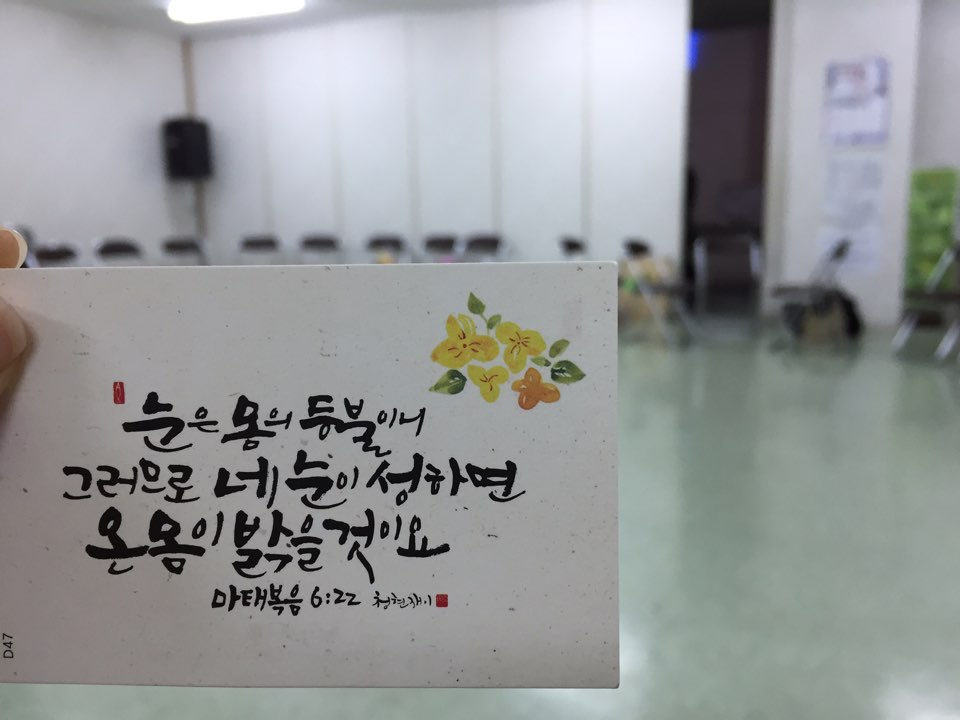 눈은 몸의 등불이니
그러므로 네 눈이 성하면
온 몸이 밝을 것이요
마태복음 6:22 청현재이
D47